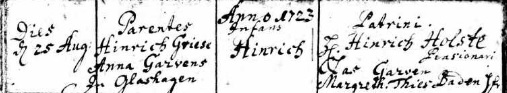 Dies
25 Aug:
Parentes
Hinrich Griese
Anna Garvens
In Glashagen
Anno 1723
Infans
Hinrich
Patrini.
H. Hinrich Holste
Pensionari
Clas Garven
Margreth Thies Baden